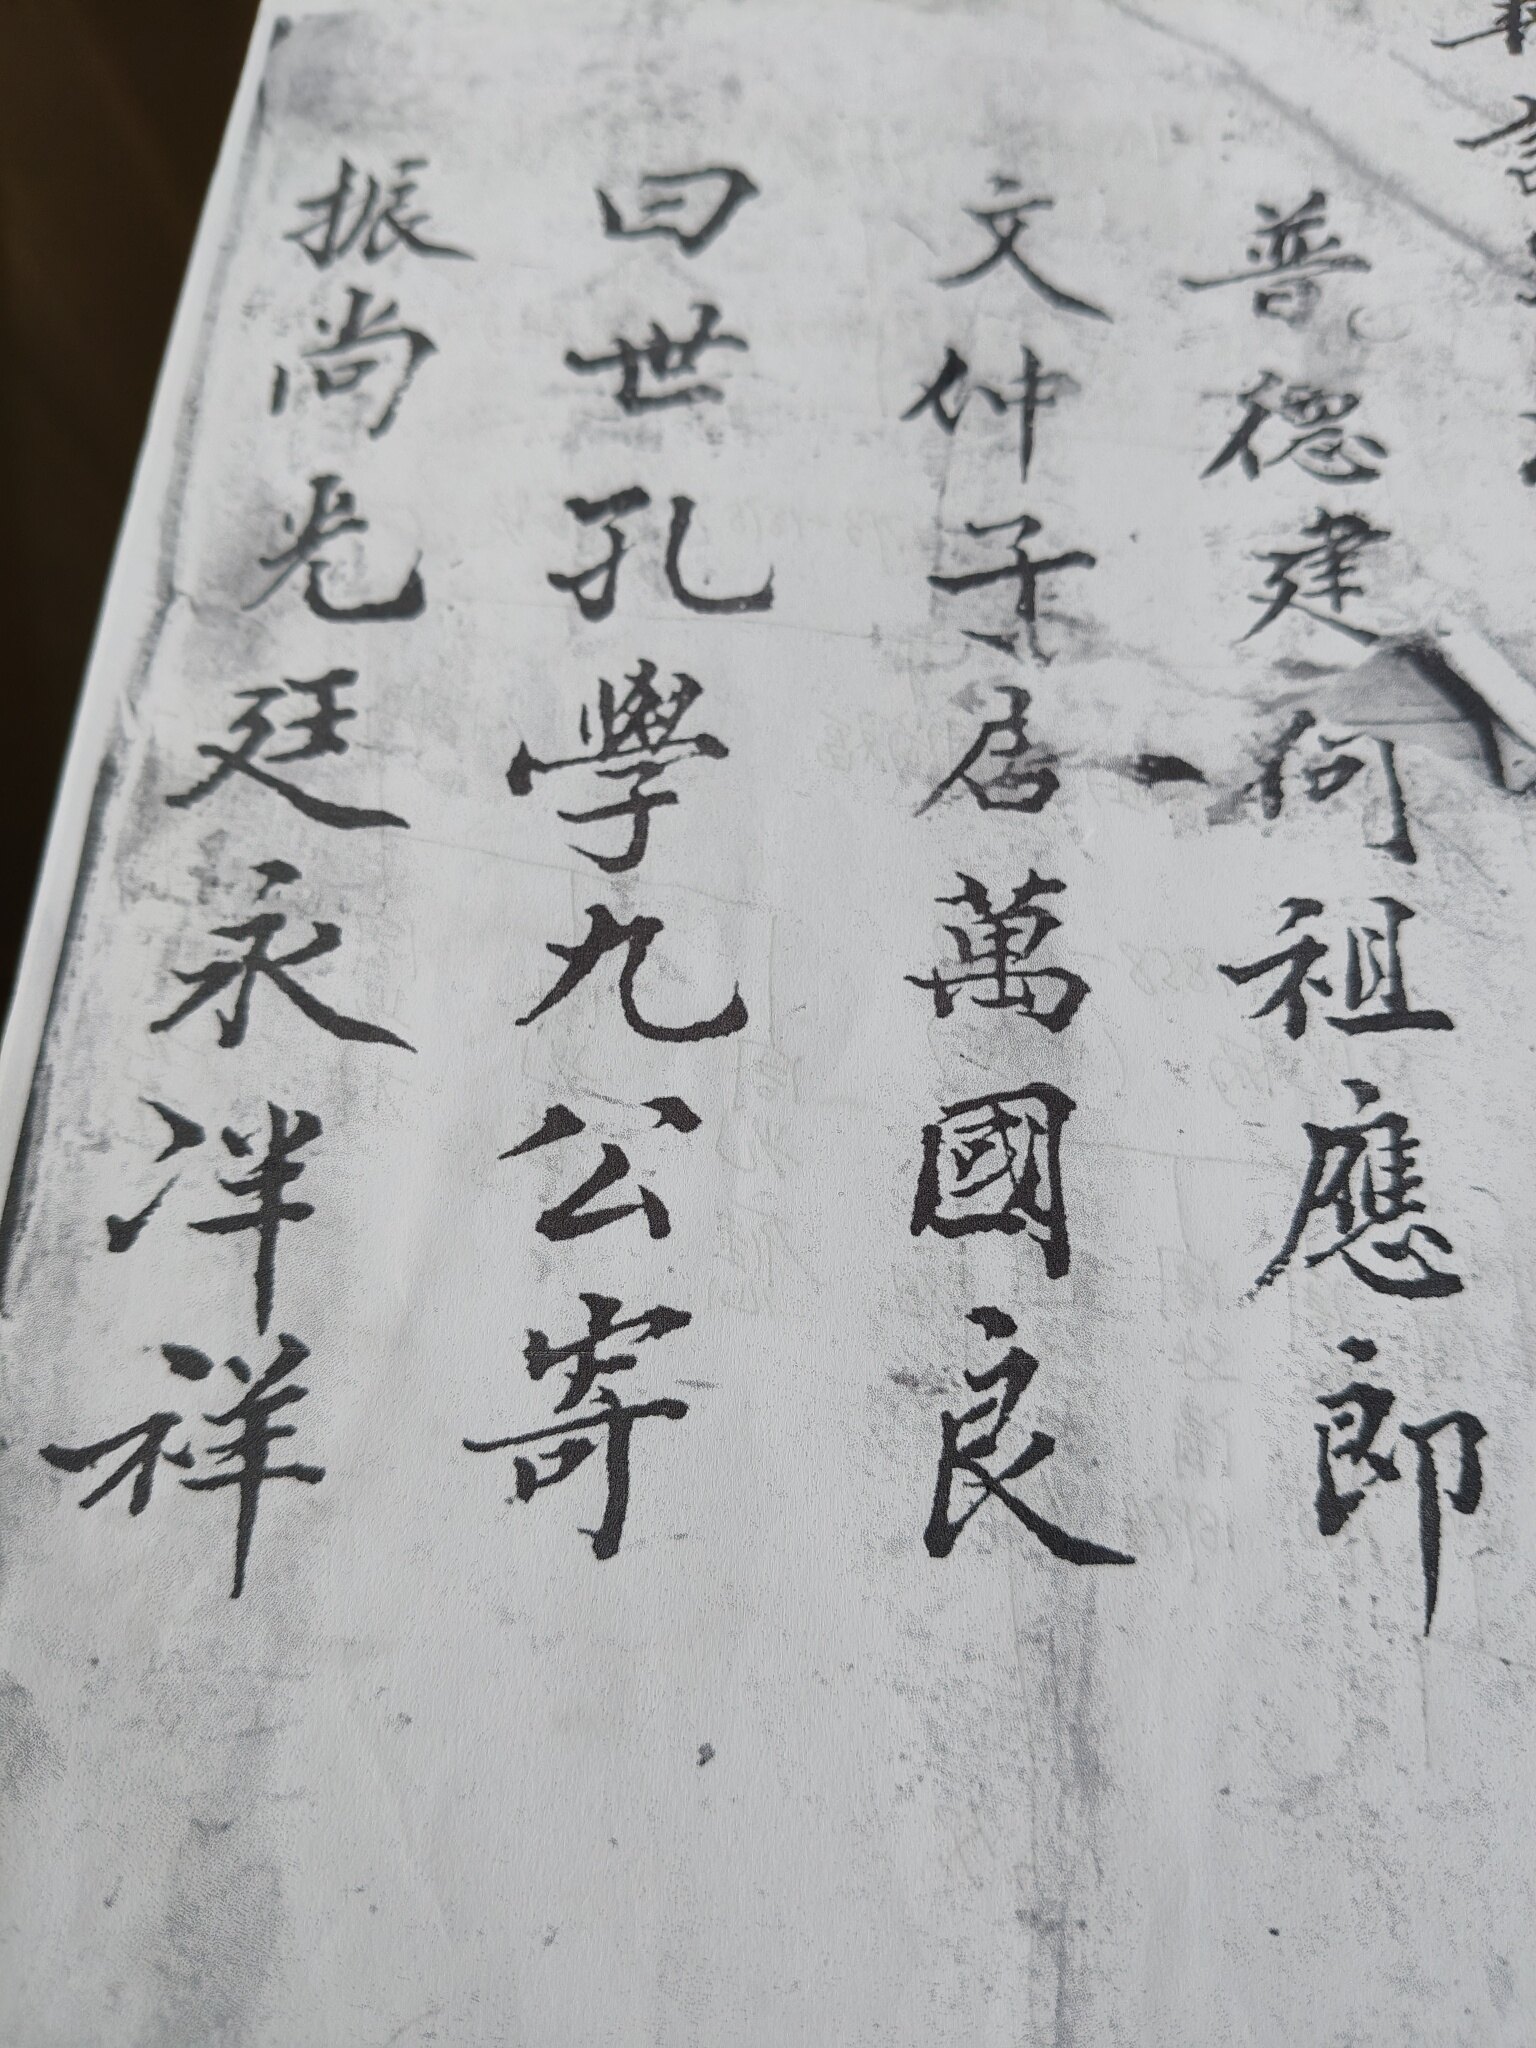 普德建向祖應郎
文仲子居萬國良
曰世孔學九公寄
振尚光廷永泮祥